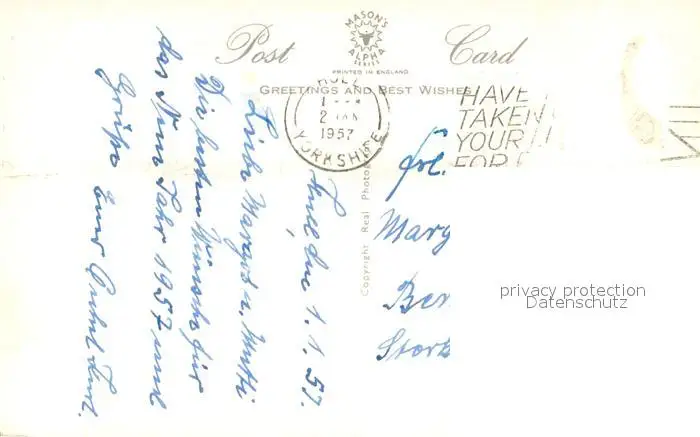 Post Card
MASON'S
ALPHA
SERIES
PRINTED IN ENGLAND
GREETINGS AND BEST WISHES
HULL
2 JAN
1957
YORKSHIRE
HAVE
TAKEN
YOUR
FOR
Copyright Real Photogr
Hull den 1.1.57.
Liebe Margot u. Mutti
Die besten Wünsche für
das Neue Jahr 1957 und
Grüße Euer Onkel Kurt.
Frl.
Marg
Ber
Stork
privacy protection
Datenschutz